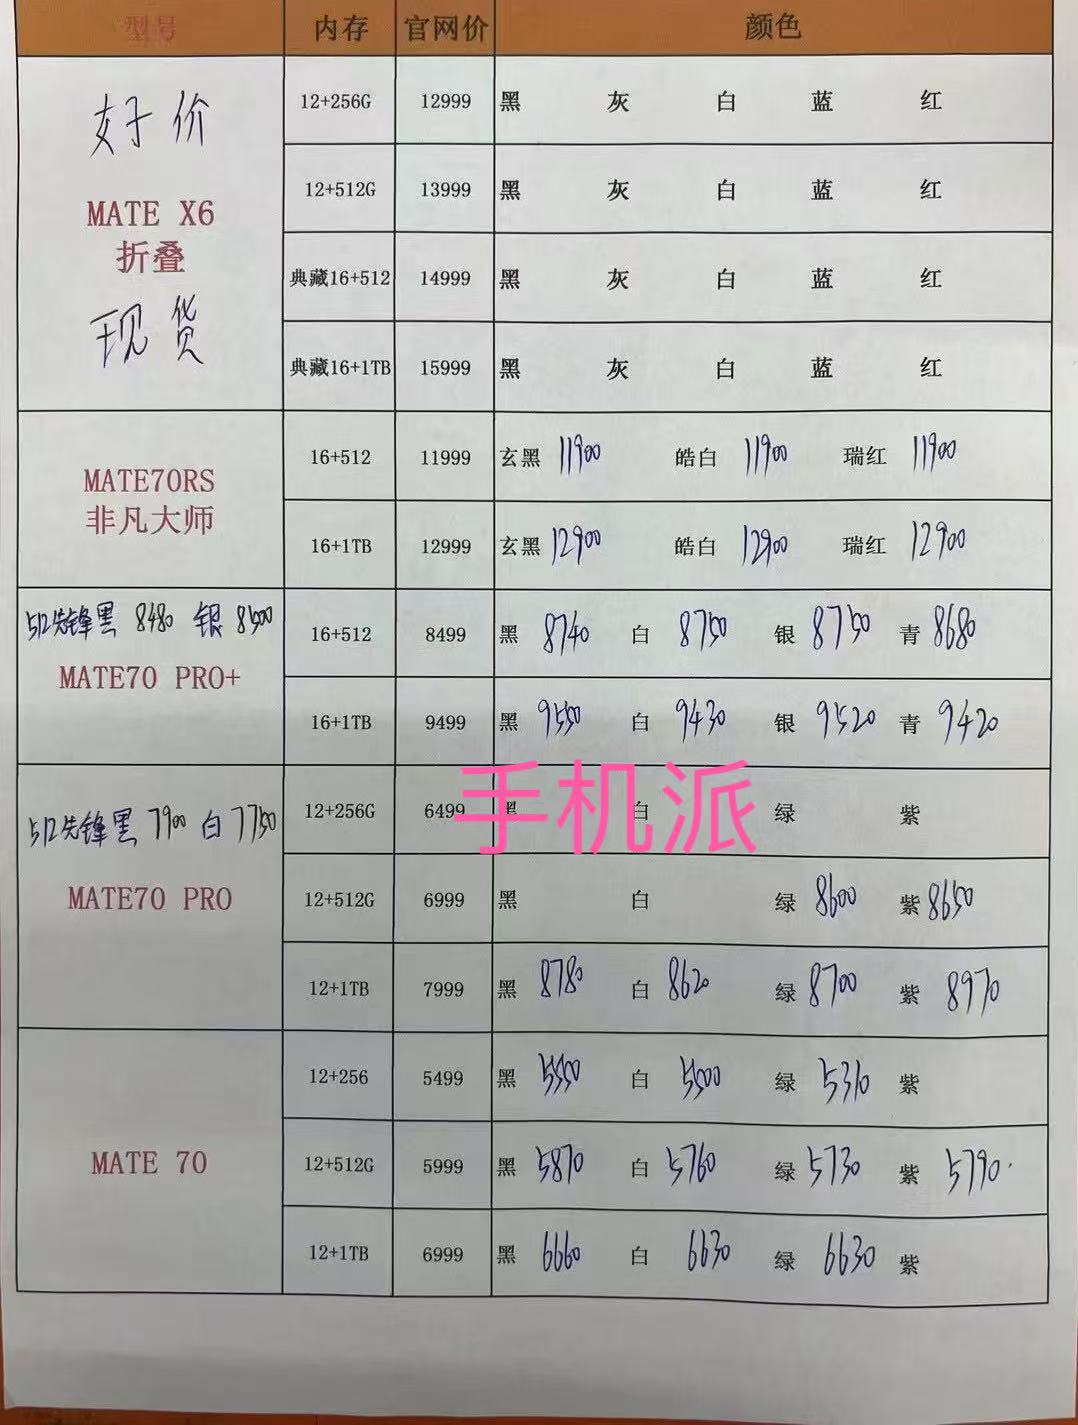 型号 内存 官网价 颜色
好价
MATE X6
折叠
现货
12+256G 12999 黑 灰 白 蓝 红
12+512G 13999 黑 灰 白 蓝 红
典藏16+512 14999 黑 灰 白 蓝 红
典藏16+1TB 15999 黑 灰 白 蓝 红
MATE70RS
非凡大师
16+512 11999 玄黑 11900 皓白 11900 瑞红 11900
16+1TB 12999 玄黑 12900 皓白 12900 瑞红 12900
512先锋黑 8480 银 8500
MATE70 PRO+
16+512 8499 黑 8740 白 8750 银 8750 青 8680
16+1TB 9499 黑 9550 白 9430 银 9520 青 9420
手机派
512先锋黑 7900 白 7750
MATE70 PRO
12+256G 6499 黑 白 绿 紫
12+512G 6999 黑 白 绿 8600 紫 8650
12+1TB 7999 黑 8780 白 8620 绿 8700 紫 8970
MATE 70
12+256 5499 黑 5550 白 5500 绿 5310 紫
12+512G 5999 黑 5870 白 5760 绿 5730 紫 5790
12+1TB 6999 黑 6660 白 6630 绿 6630 紫